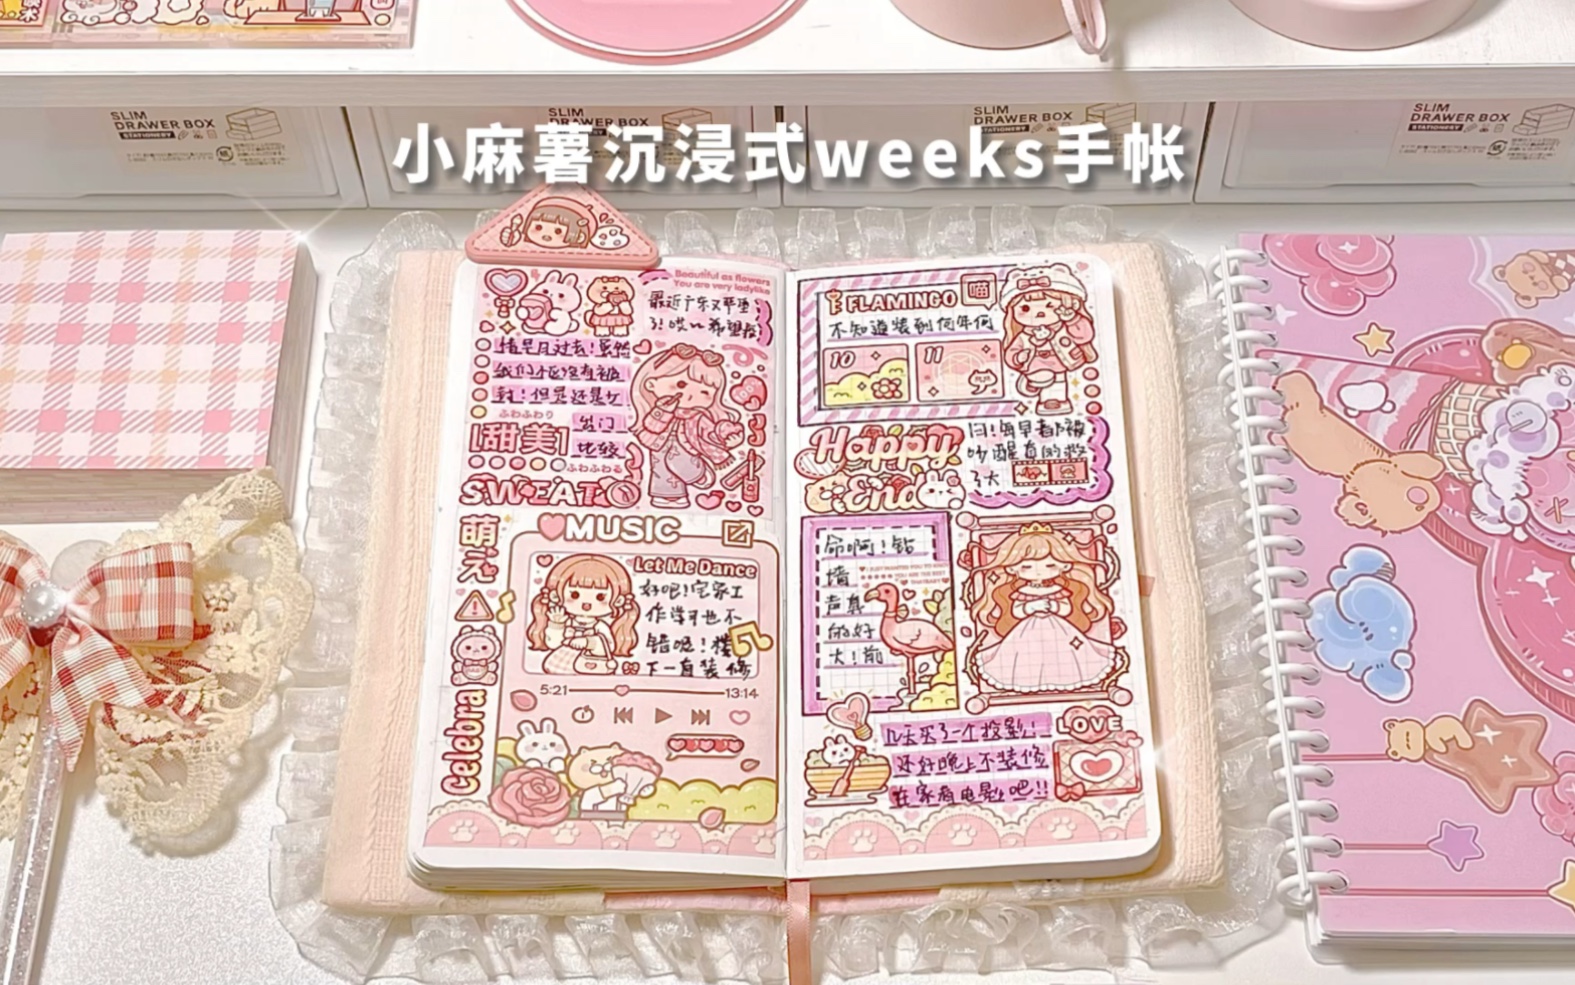 SLIM
DRAWER BOX
STATIONERY
SLIM
DRAWER BOX
STATIONERY
SLIM
DRAWER BOX
STATIONERY
SLIM
DRAWER BOX
STATIONERY
小麻薯沉浸式weeks手帐
Beautiful as flowers
You are very ladylike
最近广东又严重
了!哎~希望疫
情早日过去!虽然
我们小区没有被
封!但是还是少
出门
比较
ふわふわり
[甜美]
ふわふわる
SWEAT
萌え
Celebra
MUSIC
Let Me Dance
好吧!宅家工
作学习也不
错呢!楼
下一直装修
5:21
13:14
FLAMINGO
喵
不知道装到何年何
10
11
月!每早都被
吵醒真的救
大
Happy
End
命啊!钻
墙
声真
的好
大!前
几天买了一个投影!
还好晚上不装修
在家看电影吧!!
LOVE